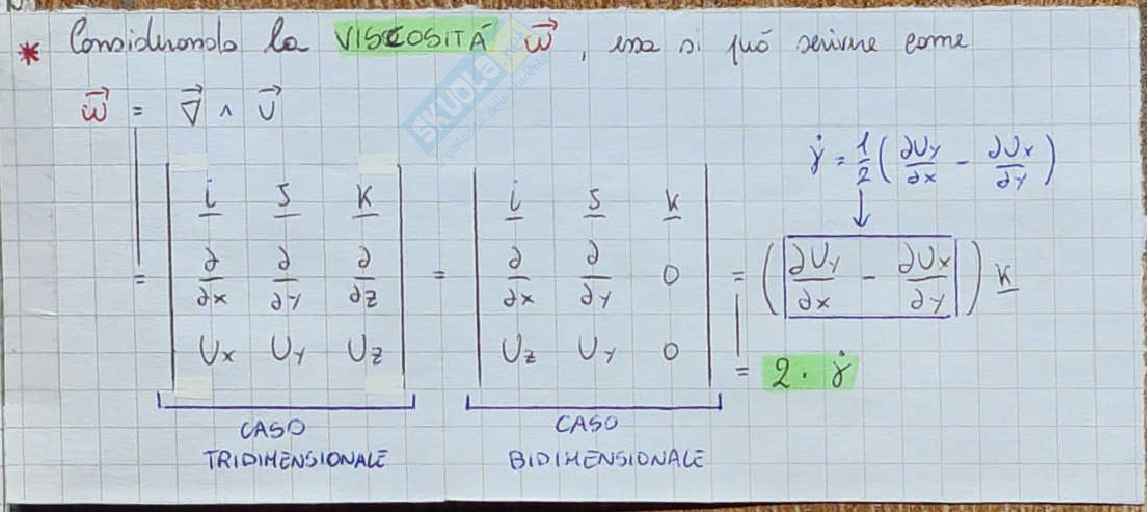 * Considerando la VISCOSITÀ $\vec{\omega}$, essa si può scrivere come
$\vec{\omega} = \vec{\nabla} \wedge \vec{U}$
$\dot{\gamma} = \frac{1}{2}\left(\frac{\partial U_y}{\partial x} - \frac{\partial U_x}{\partial y}\right)$
↓
$= \begin{vmatrix} \underline{i} & \underline{j} & \underline{k} \\ \frac{\partial}{\partial x} & \frac{\partial}{\partial y} & \frac{\partial}{\partial z} \\ U_x & U_y & U_z \end{vmatrix} = \begin{vmatrix} \underline{i} & \underline{j} & \underline{k} \\ \frac{\partial}{\partial x} & \frac{\partial}{\partial y} & 0 \\ U_z & U_y & 0 \end{vmatrix} = \left(\frac{\partial U_y}{\partial x} - \frac{\partial U_x}{\partial y}\right) \underline{k}$
$= 2 \cdot \dot{\gamma}$
CASO TRIDIMENSIONALE
CASO BIDIMENSIONALE
SKUOLA